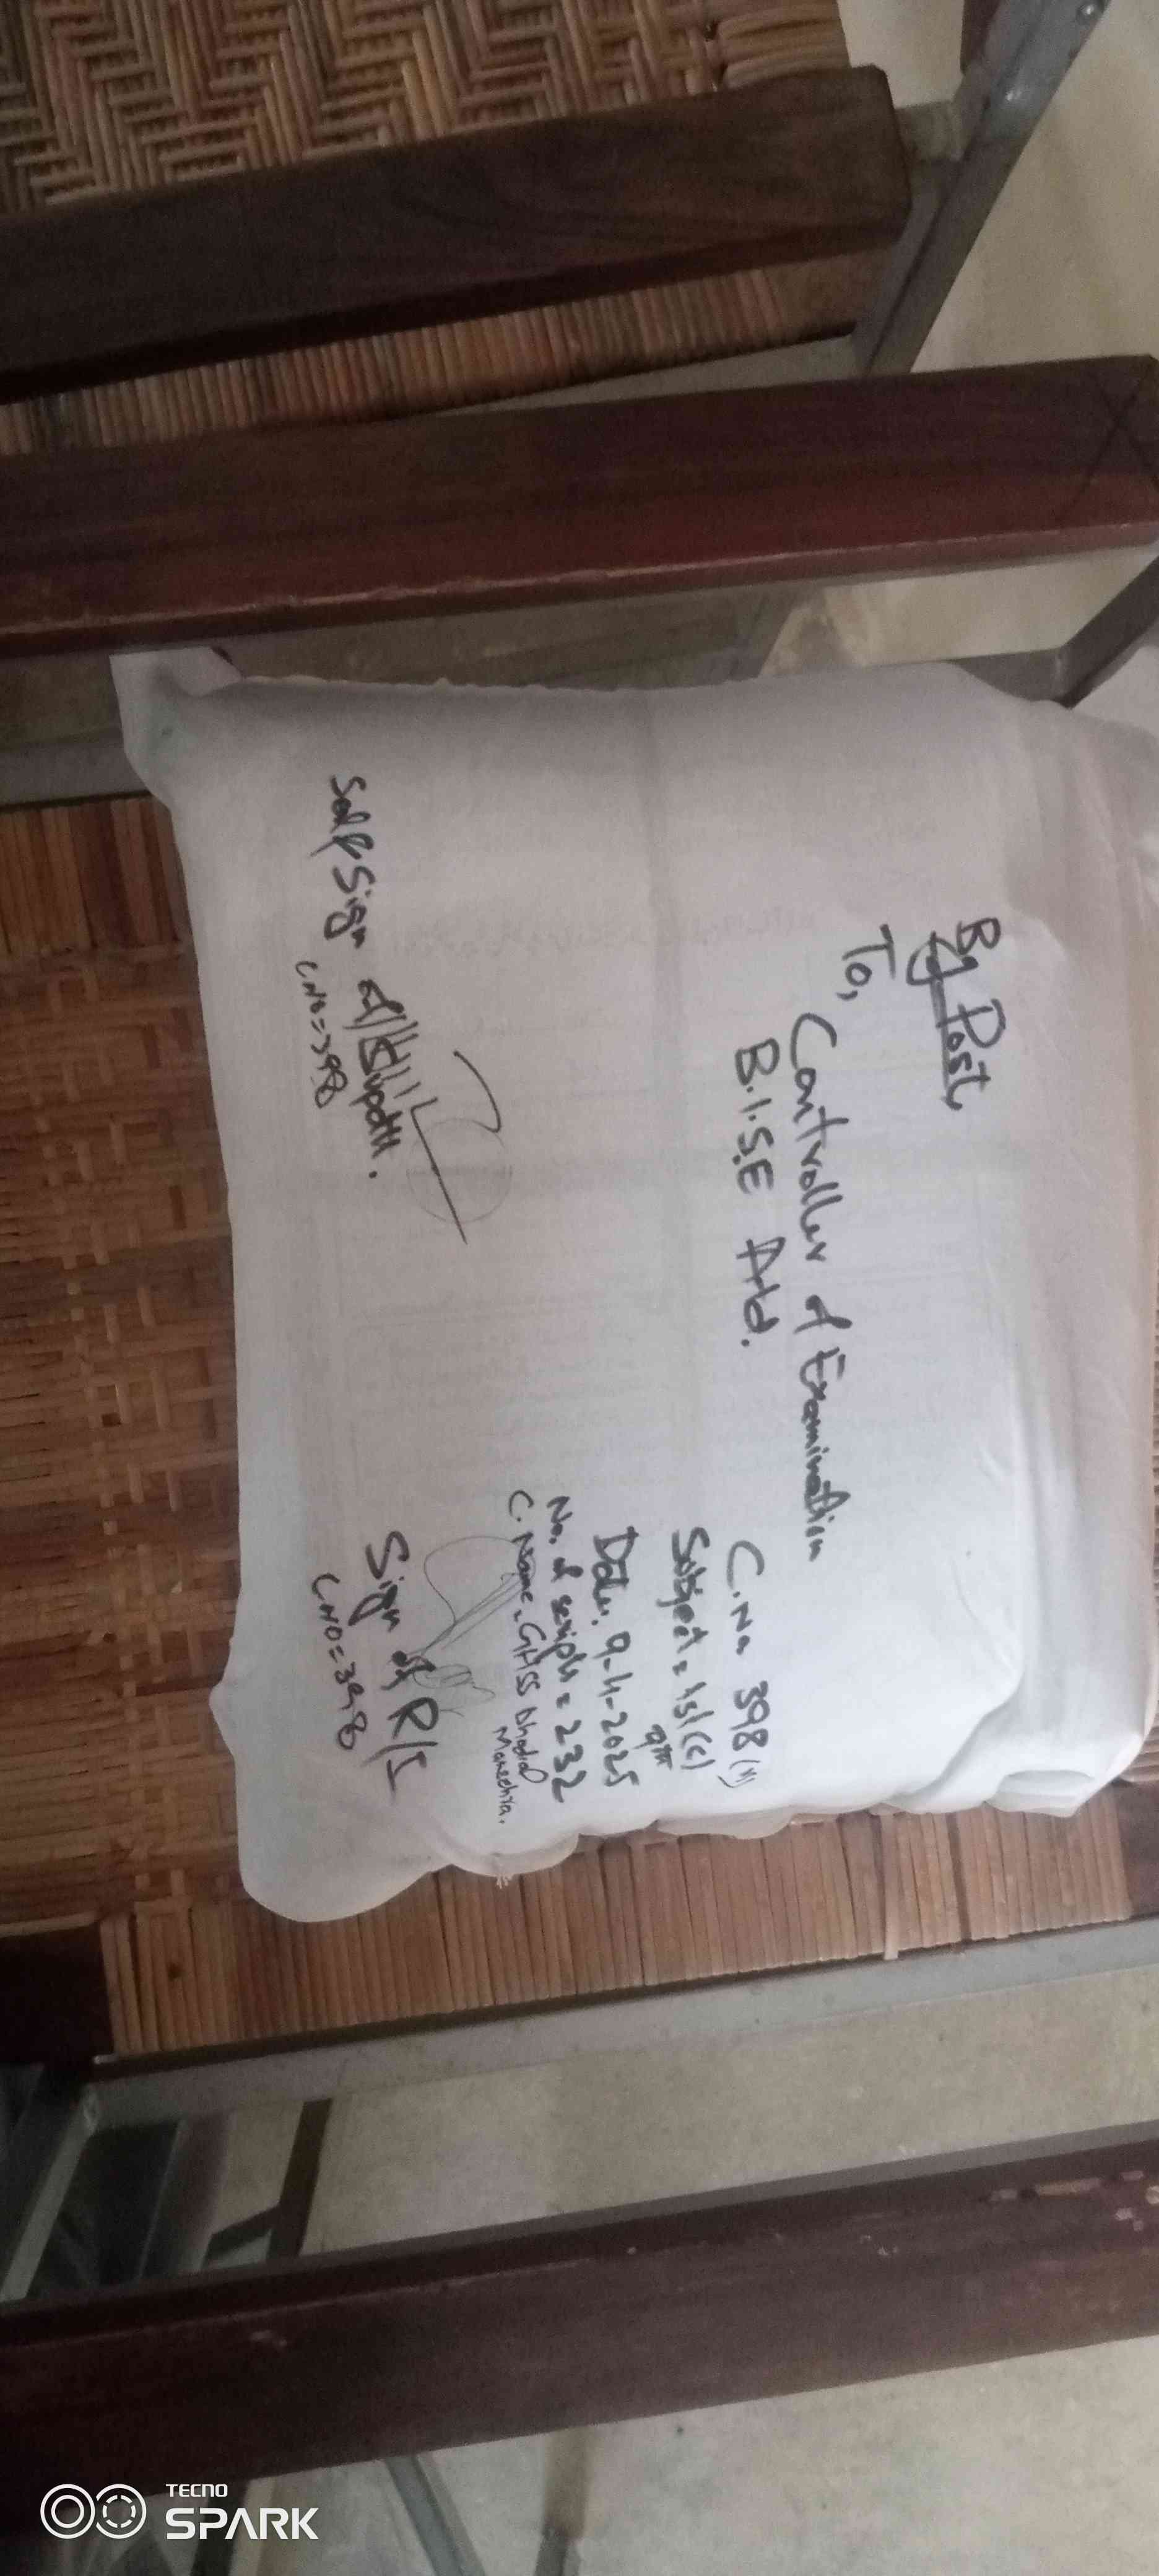 By Post
To,
Controller of Examination
B.I.S.E Atd.
C.No 398 (M)
Subject = Isl(C)
9th
Date. 9-4-2025
No. of scripts = 232
C. Name. GHSS Dhodial
Mansehra.
Seal & Sign of Supdtt.
C NO = 398
Sign of R/I
C NO = 398
TECNO
SPARK